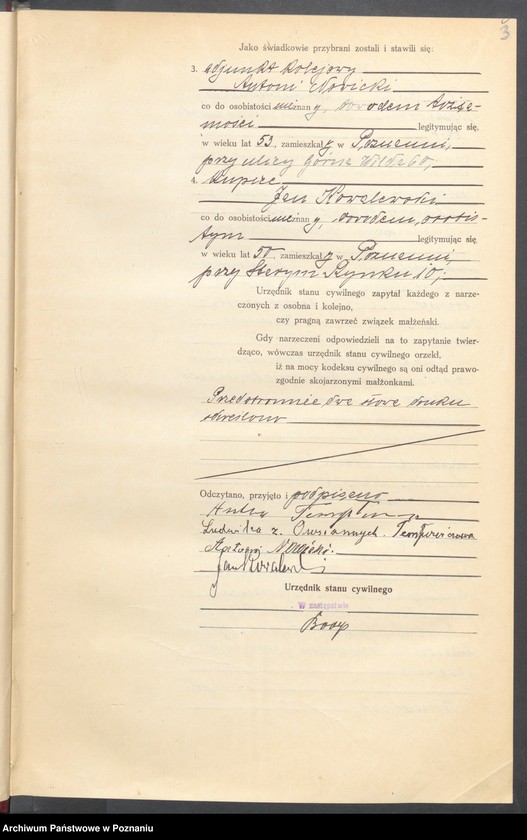 3
Jako świadkowie przybrani zostali i stawili się:
3. adjunkt kolejowy
Antoni Nowicki
co do osobistości nieznany, dowodem tożsa-
mości legitymując się,
w wieku lat 53, zamieszkały w Poznaniu,
przy ulicy Górna Wilda 60,
4. kupiec
Jan Kowalewski
co do osobistości nieznany, dowodem osobis-
tym legitymując się
w wieku lat 50, zamieszkały w Poznaniu,
przy Starym Rynku 10;
Urzędnik stanu cywilnego zapytał każdego z narze-
czonych z osobna i kolejno,
czy pragną zawrzeć związek małżeński.
Gdy narzeczeni odpowiedzieli na to zapytanie twier-
dząco, wówczas urzędnik stanu cywilnego orzekł,
iż na mocy kodeksu cywilnego są oni odtąd prawo-
zgodnie skojarzonymi małżonkami.
Przedstronnie dwa słowa druku
skreślono
Odczytano, przyjęto i podpisano
Ludwika z
Antoni Nowicki.
Jan Kowalewski
Urzędnik stanu cywilnego
W zastępstwie
Archiwum Państwowe w Poznaniu